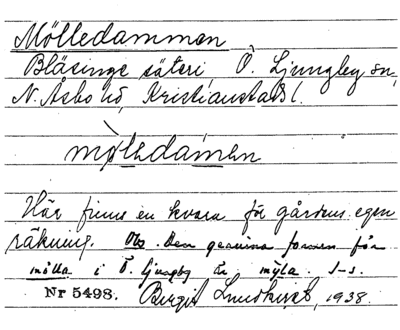 Mölledammen
Bläsinge säteri, Ö. Ljungby sn,
N. Åsbo hd, Kristianstads l.
mølledamen
Här finns en kvarn för gårdens egen
räkning. Obs. Den genuina formen för
mölla i Ö. Ljungby är myla. I-s.
Nr 5498. Birgit Lundkvist, 1938.